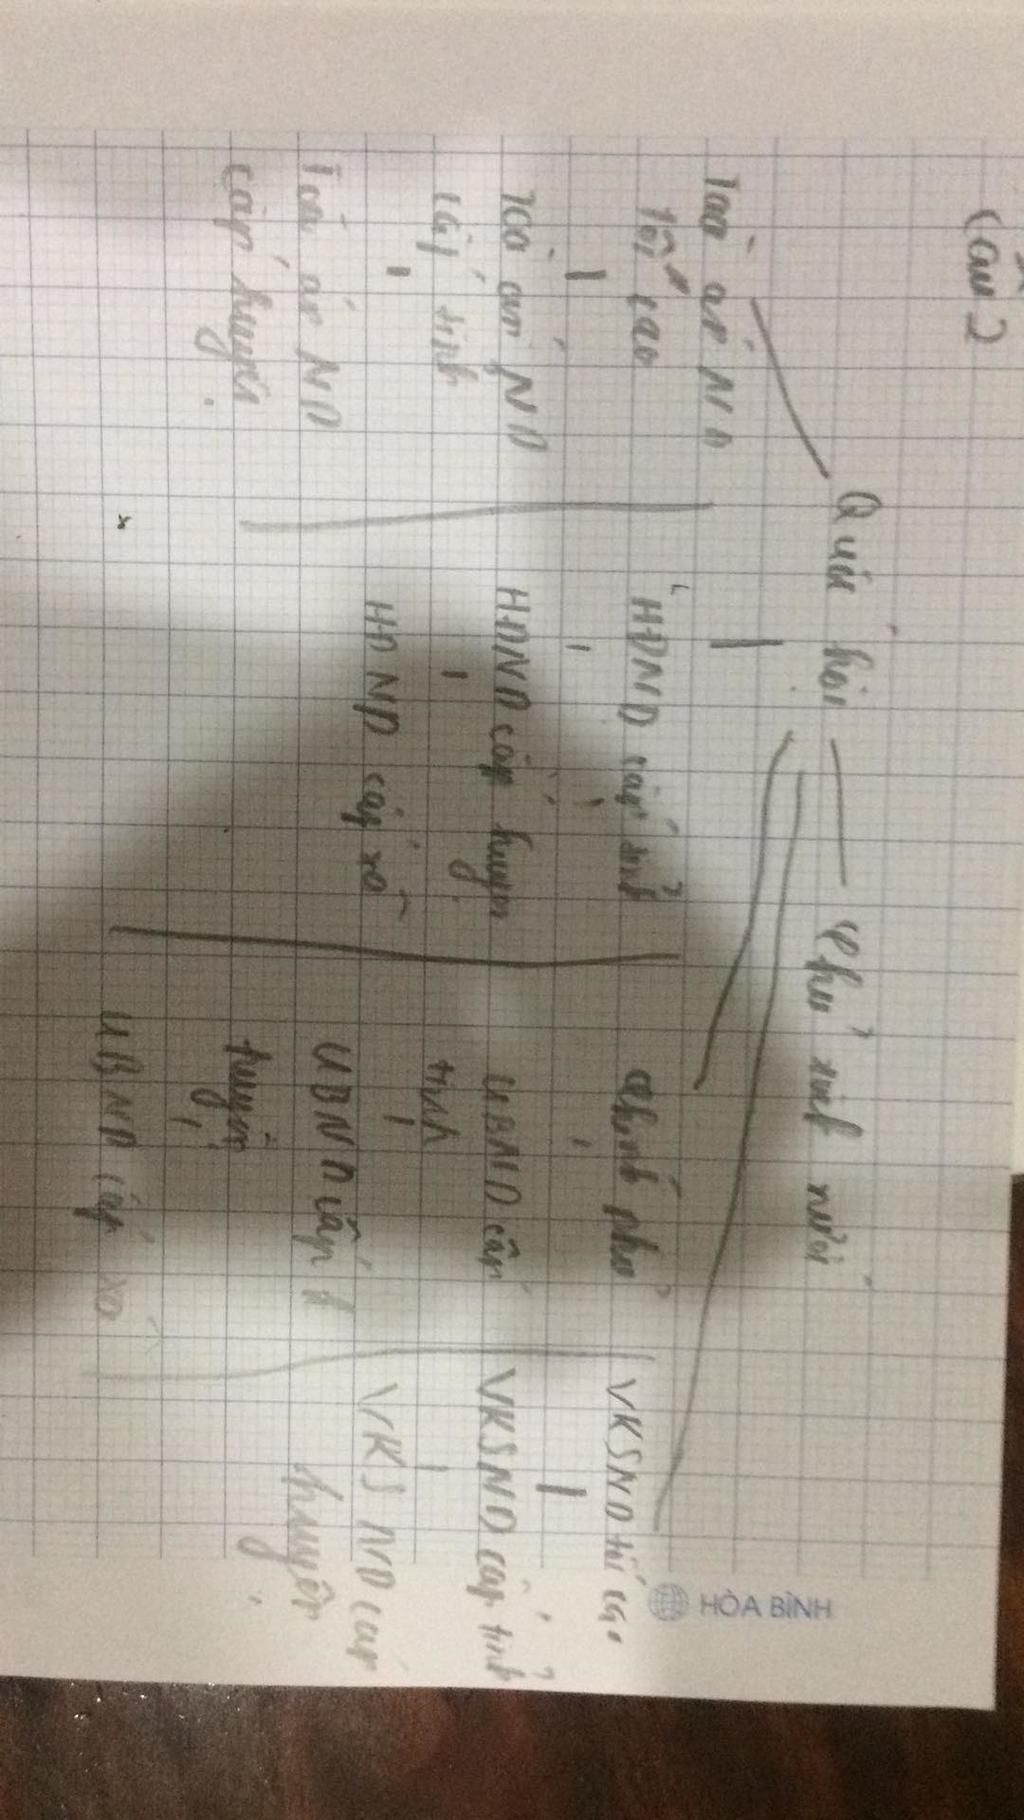 Câu 2
Quốc hội — Chủ tịch nước
Toà án ND
Tối cao
Toà án ND
Cấp tỉnh
Toà án ND
Cấp huyện
HĐND cấp tỉnh
HĐND cấp huyện
HĐND cấp xã
Chính phủ
UBND cấp
tỉnh
UBND cấp
huyện
UBND cấp xã
VKSND tối cao
VKSND cấp tỉnh
VKSND cấp
huyện
HÒA BÌNH